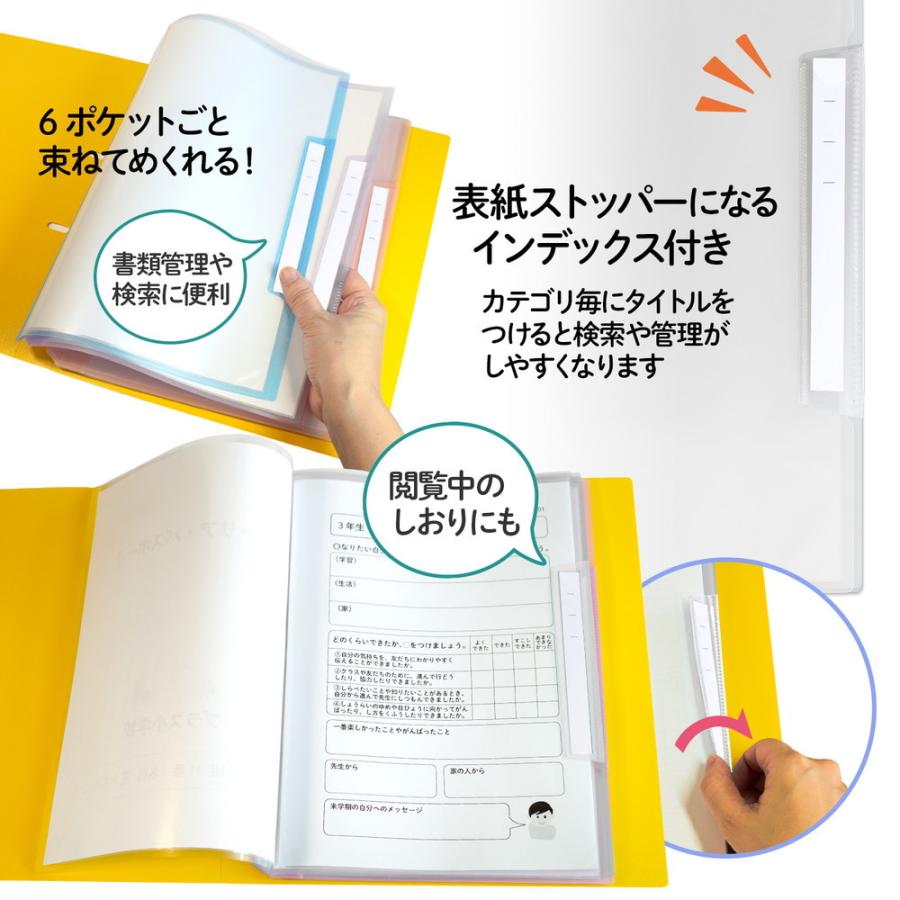 6ポケットごと
束ねてめくれる！
書類管理や
検索に便利
表紙ストッパーになる
インデックス付き
カテゴリ毎にタイトルを
つけると検索や管理が
しやすくなります
閲覧中の
しおりにも
01
3年生
〇なりたい自
（学習）
（生活）
（家）
どのくらいできたか、〇をつけましょう。
よくできた
できた
すこしできた
あまりできなかった
①自分の気持ちを、友だちにわかりやすく
伝えることができましたか。
②クラスや友だちのために、進んで行どう
したり、協力したりできましたか。
③しらべたいことや知りたいことがあるとき、
自分から進んで先生にしつもんできましたか。
④しょうらいのゆめや目ひょうに向かってがん
ばったり、し方をくふうしたりできましたか。
一番楽しかったことやがんばったこと
先生から
家の人から
来学期の自分へのメッセージ